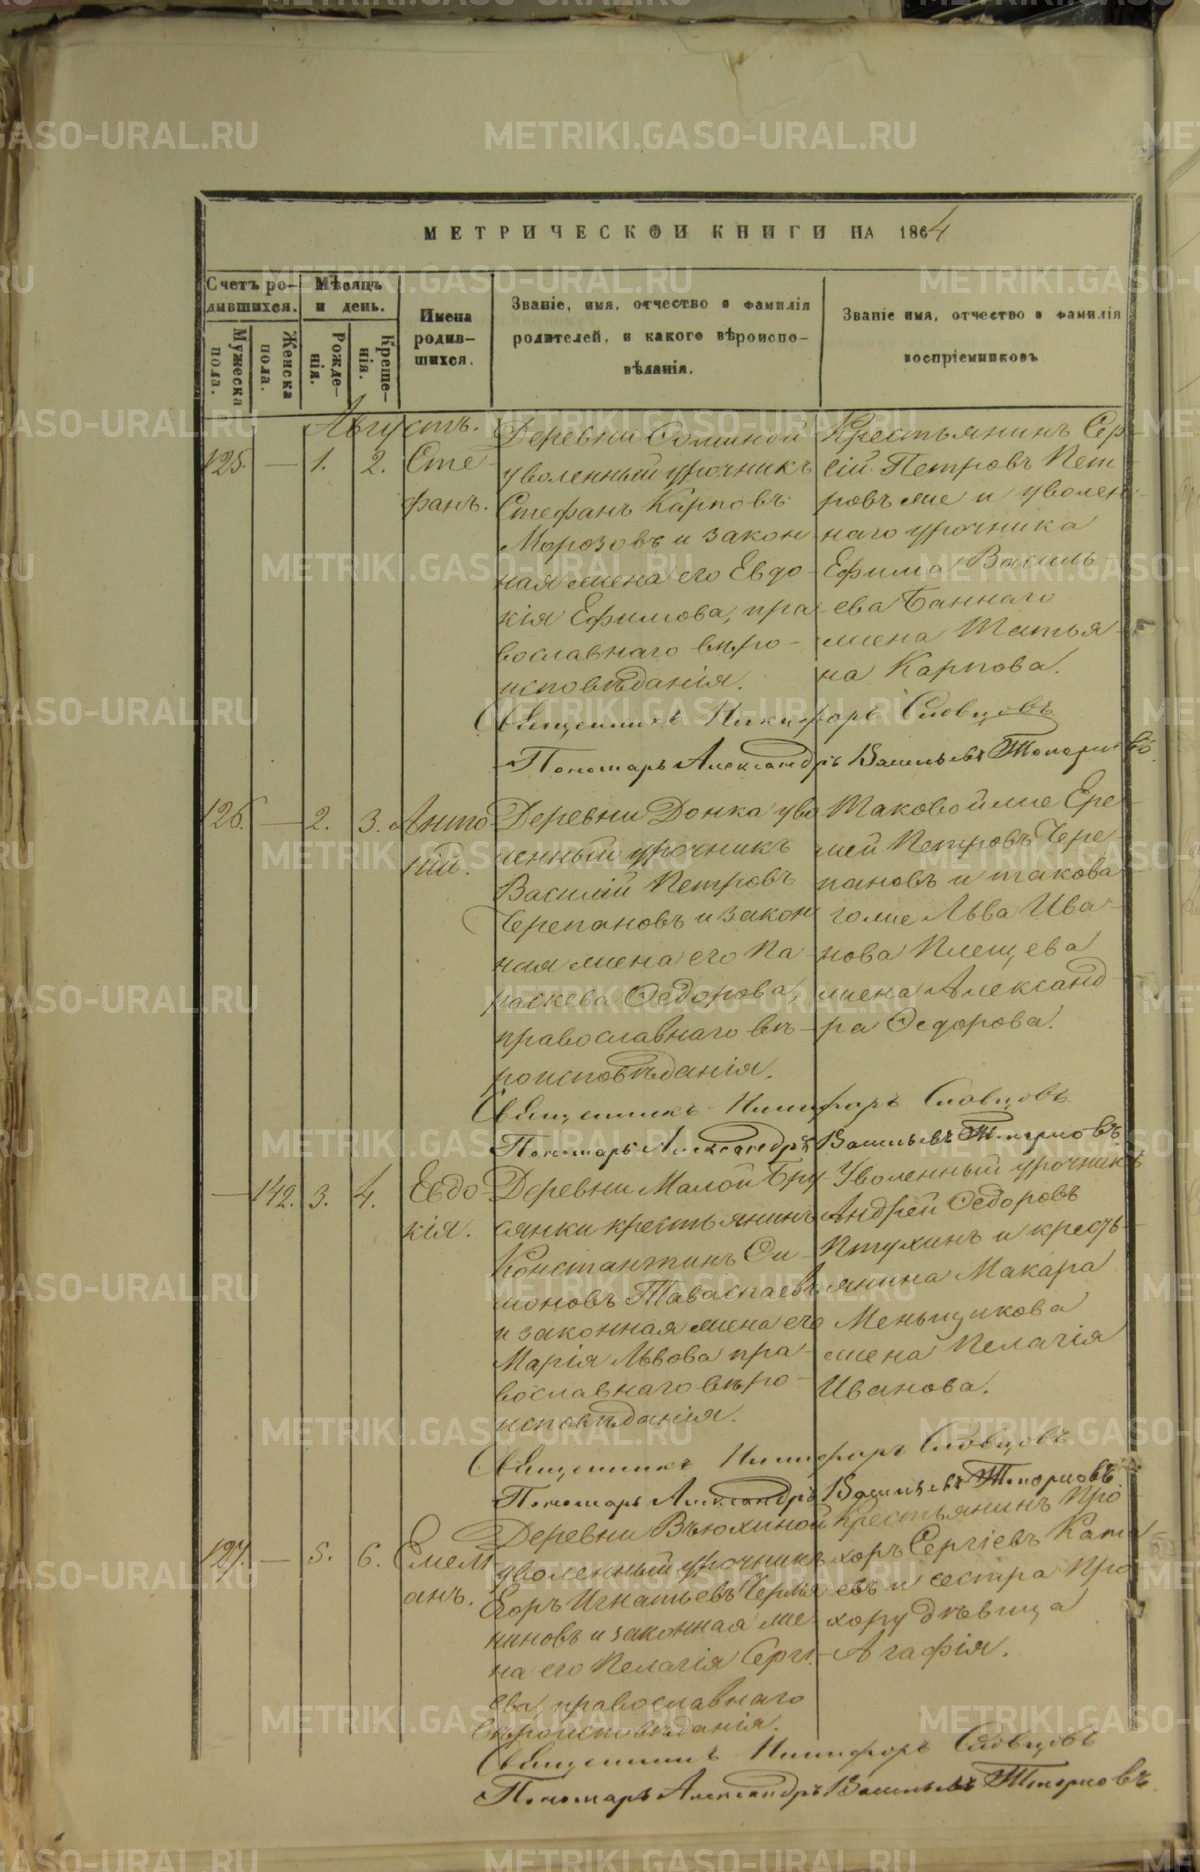 МЕТРИЧЕСКОЙ КНИГИ НА 1864
Счетъ ро-
дившихся.
Мѣсяцъ
и день.
Имена
родив-
шихся.
Званіе, имя, отчество и фамилія
родителей, и какого вѣроиспо-
вѣданія.
Званіе имя, отчество и фамилія
воспріемниковъ
Мужеска
пола.
Женска
пола.
Рожде-
нія.
Креще-
нія.
Августъ.
125. — 1. 2. Сте-
фанъ.
Деревни Соминой
уволенный урочникъ
Стефанъ Карповъ
Морозовъ и закон
ная жена его Евдо-
кія Ефимова, пра-
вославнаго вѣро-
исповѣданія.
Крестьянинъ Сер-
гій Петровъ Пет-
ровъ же и уволен-
наго урочника
Ефима Василь
ева Баннаго
жена Татья-
на Карпова.
Священникъ Никифоръ Словцовъ
Пономарь Александръ Васильевъ Топорковъ.
126. — 2. 3. Анто-
ній.
Деревни Донка уво
ленный урочникъ
Василій Петровъ
Черепановъ и закон
ная жена его Па-
раскева Ѳедорова,
православнаго вѣ-
роисповѣданія.
Таковой же Ере-
мей Петровъ Чере-
пановъ и такова-
го же Льва Ива-
нова Плещева
жена Александ-
ра Ѳедорова.
Священникъ Никифоръ Словцовъ
Пономарь Александръ Васильевъ Топорковъ.
— 142. 3. 4. Евдо-
кія.
Деревни Малой Бру-
сянки крестьянинъ
Константинъ Си-
моновъ
и законная жена его
Марія Львова пра-
вославнаго вѣро-
исповѣданія.
Уволенный урочникъ
Андрей Ѳедоровъ
Птухинъ и кресть-
янина Макара
Меньщикова
жена Пелагія
Иванова.
Священникъ Никифоръ Словцовъ
Пономарь Александръ Васильевъ Топорковъ.
127. — 5. 6. Емель-
анъ.
Деревни Вьюхиной
уволенный урочникъ
Егоръ Игнатьевъ
ниновъ и законная же-
на его Пелагія Серги-
ева, православнаго
вѣроисповѣданія.
Крестьянинъ Про-
хоръ СергіевъКата-
евъ и сестра Про-
хору дѣвица
Агафія.
Священникъ Никифоръ Словцовъ
Пономарь Александръ Васильевъ Топорковъ.
METRIKI.GASO-URAL.RU